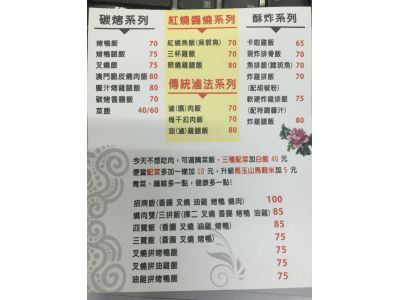 碳烤系列
烤鴨飯 70
烤鴨腿飯 75
叉燒飯 75
澳門脆皮燒肉飯 80
蜜汁烤雞腿飯 80
碳烤香腸飯 70
菜飯 40/60
紅燒醬燒系列
紅燒魚飯(吳郭魚) 70
三杯雞飯 70
照燒雞腿飯 80
傳統滷法系列
滷(爌)肉飯 70
梅干扣肉飯 70
油(滷)雞腿飯 80
酥炸系列
卡啦雞飯 65
現炸排骨飯 70
魚排飯(鱈斑魚) 70
炸雞排飯 70
(配胡椒粉)
軟硬炸雞排飯 75
(配特調醬汁)
炸雞腿飯 80
今天不想吃肉，可選購菜飯，三種配菜加白飯 40 元
便當配菜多加一樣加 10 元，升級馬玉山馬穀米加 5 元
青菜，纖維多一點，健康多一點!
招牌飯(香腸 叉燒 油雞 烤鴨 燒肉) 100
燒肉雙/三拼飯(擇二 叉燒 香腸 烤鴨 油雞) 85
四寶飯(香腸 叉燒 油雞 烤鴨) 85
三寶飯(香腸 叉燒 烤鴨) 75
叉燒拼烤鴨飯 75
叉燒拼油雞飯 75
油雞拼烤鴨飯 75